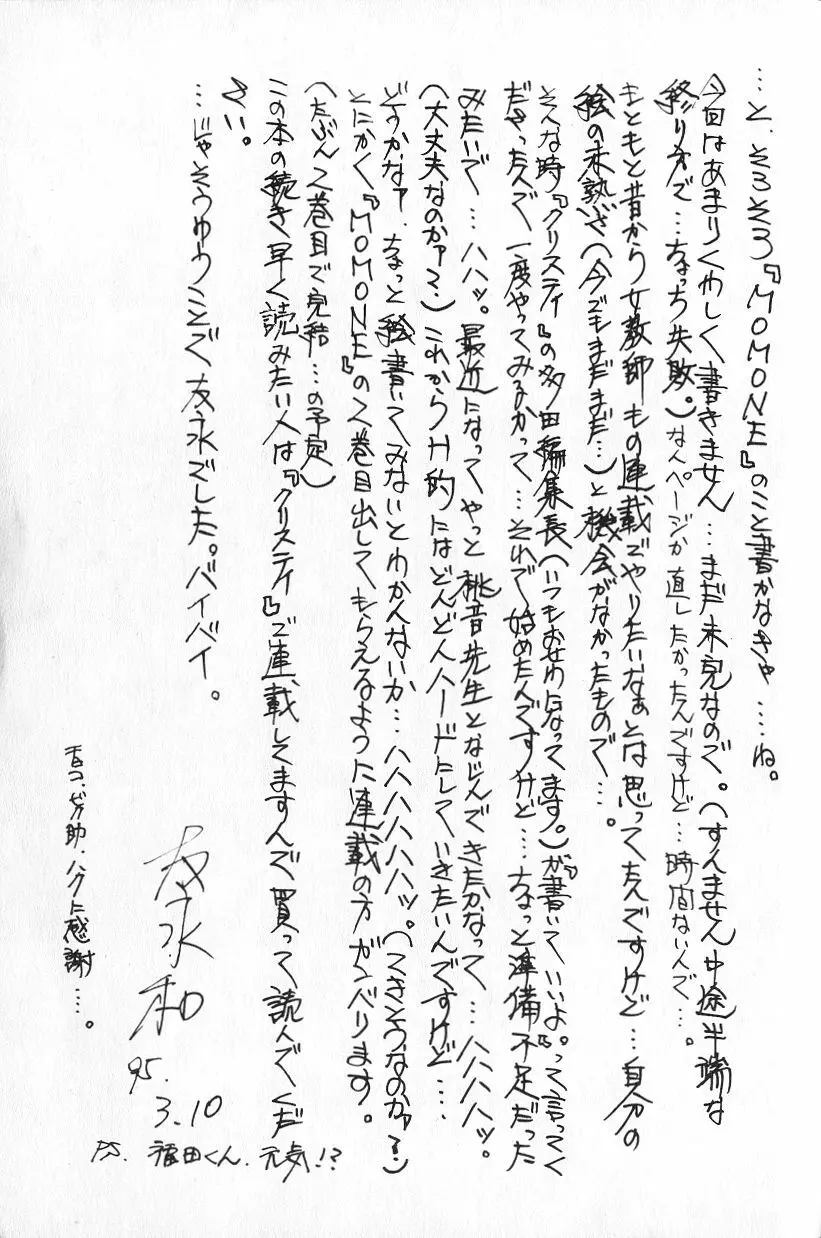 …と、そろそろ『MOMONE』のこと書かなきゃ…ね。
今回はあまりくわしく書きません…まだ未完なので。(すんません中途半端な
終り方で…ちょっち失敗。)なんページか直したかったんですけど…時間ないんで…。
もともと昔から女教師もの連載でやりたいなぁとは思ってたんですけど…自分の
絵の未熟さ(今でもまだまだ…)と機会がなかったもので…。
そんな時『クリスティ』の多田編集長(いつもお世わになってます。)が『書いていいよ。』って言ってく
ださったんで一度やってみるかって…それで始めたんですけど…ちょっと準備不足だった
みたいで…ハハッ。最近になってやっと桃音先生となじんできたかなって…ハハハハッ。
(大丈夫なのかァ?)これからH的にはどんどんハードにしていきたいんですけど…
どうかなァ、ちょっと絵書いてみないとわかんないか…ハハハハハハッ。(てきとうなのかァ?)
とにかく『MOMONE』の2巻目出してもらえるように連載の方ガンバります。
(たぶん2巻目で完結…の予定)
この本の続き早く読みたい人は『クリスティ』で連載してますんで買って読んでくだ
さい。
…じゃそうゆうことで友永でした。バイバイ。
友永和
95.
3.10
P.S. 福田くん、元気!?
助、ハクに感謝…。